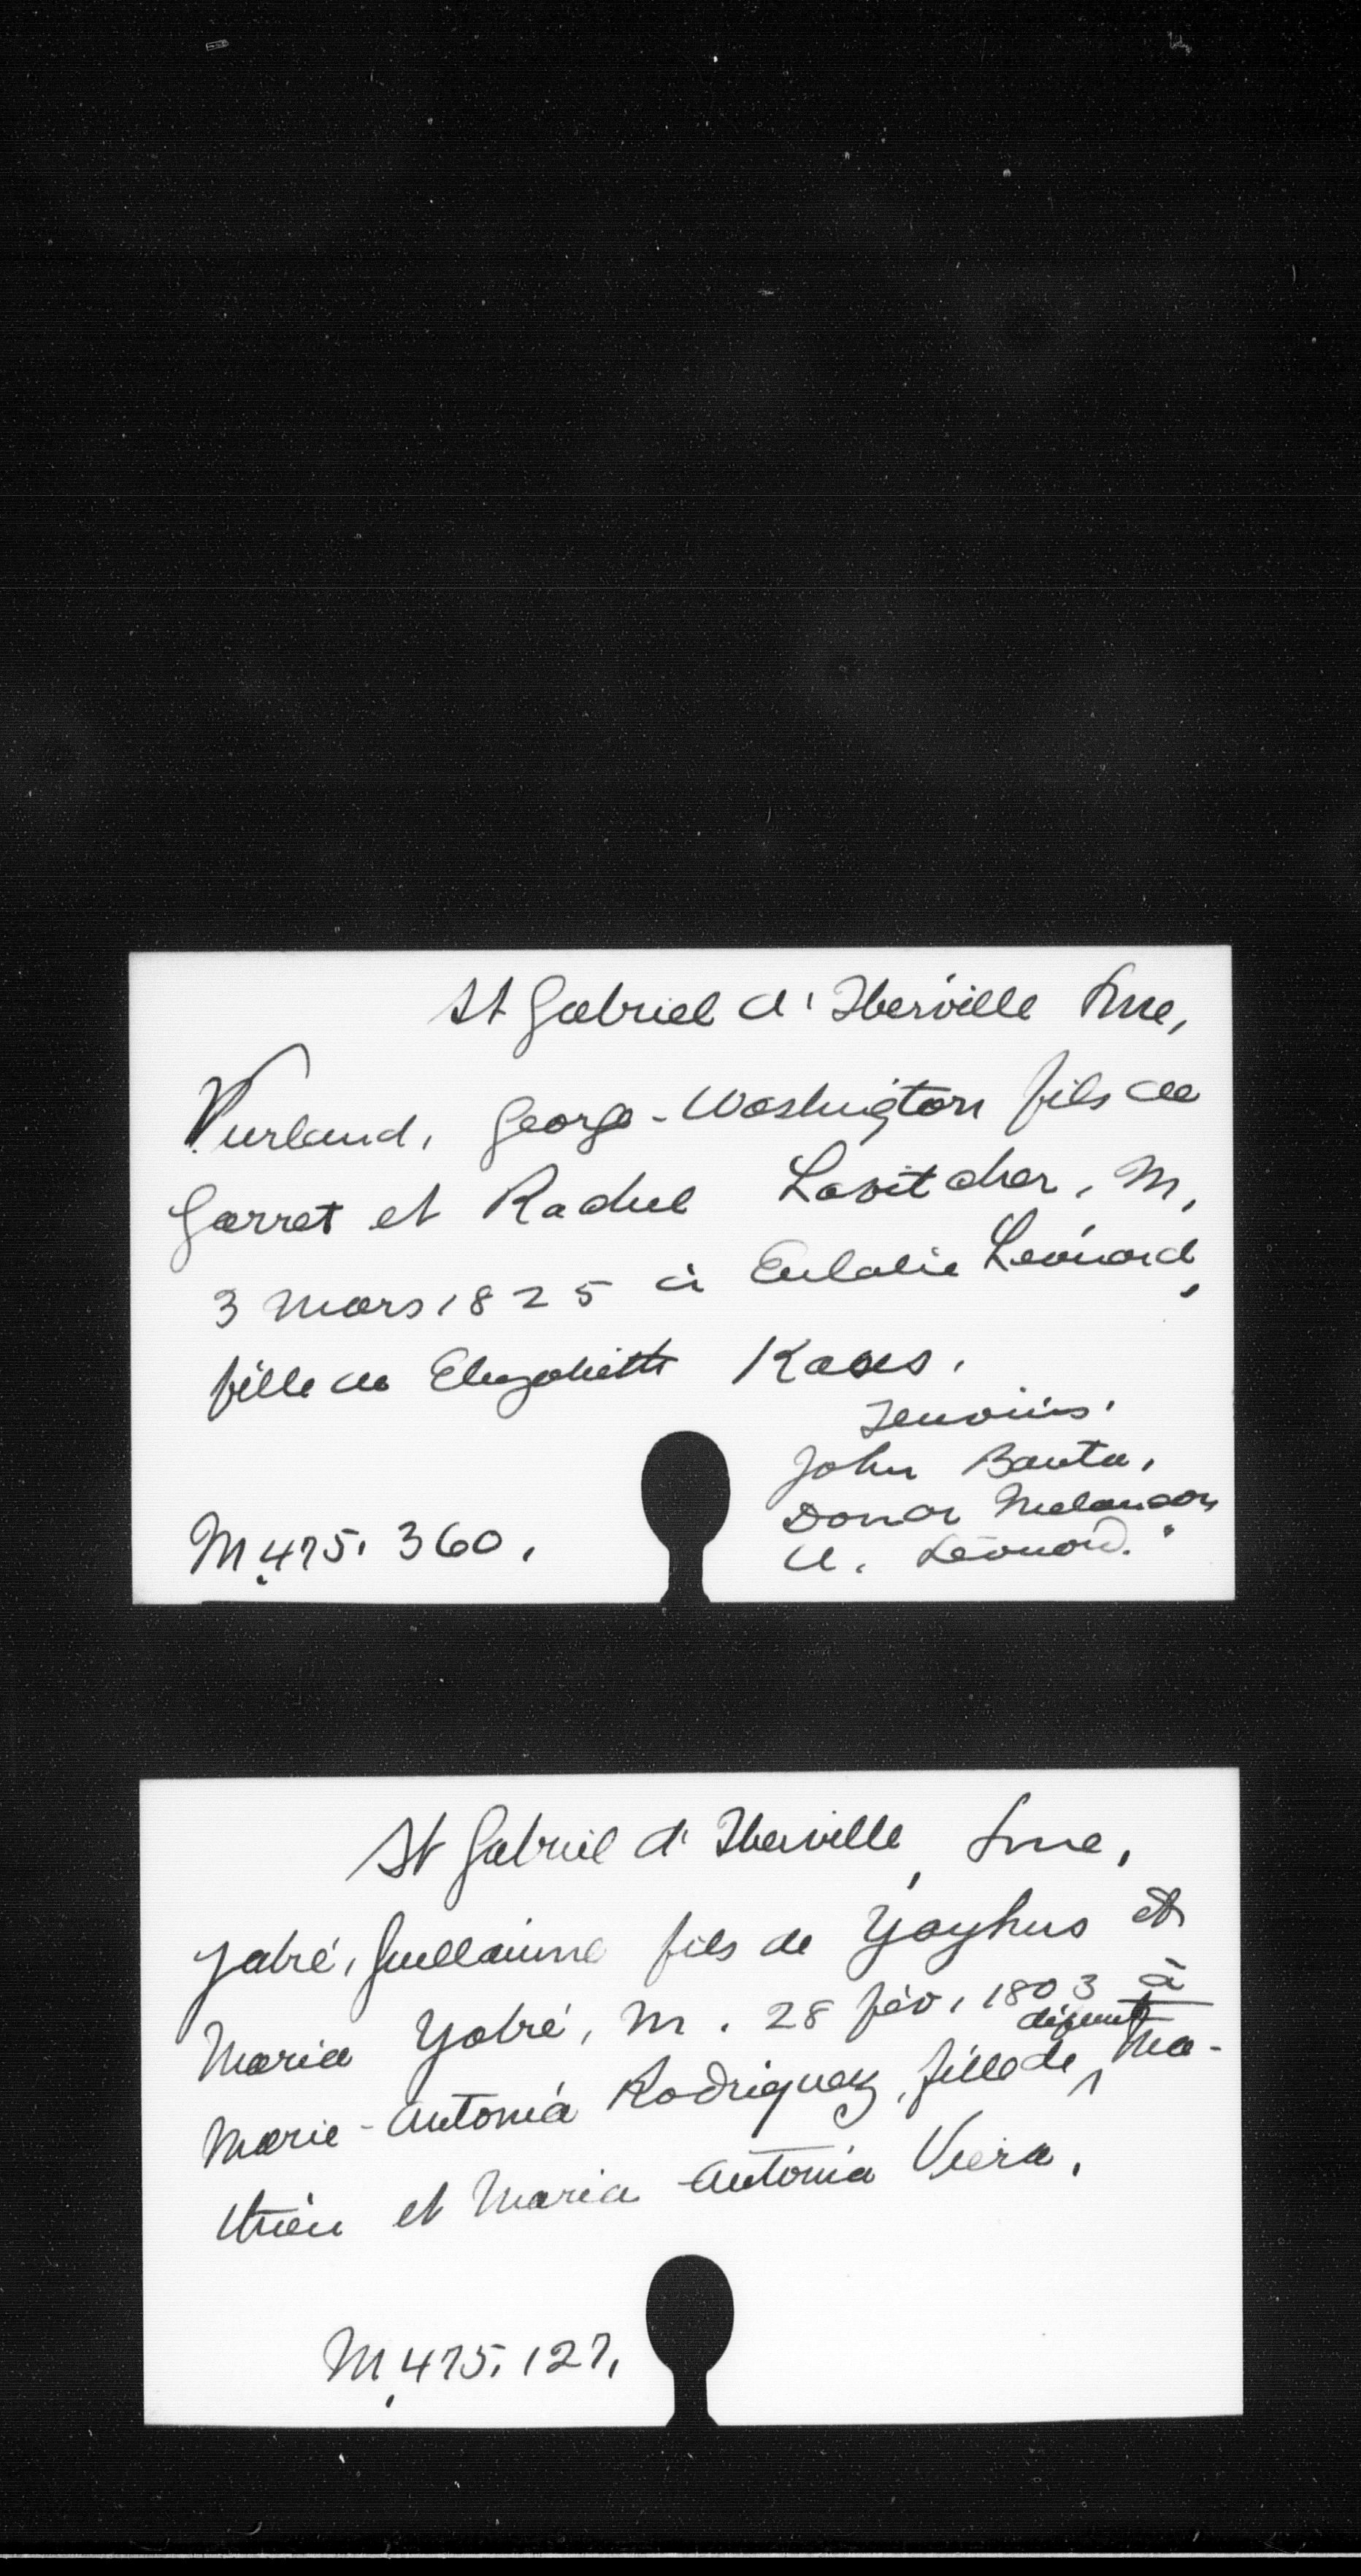 St Gabriel d'Iberville Lne,
Vurland, George-Washington fils de
Garret et Rachel Lavitcher, M.
3 mars 1825 à Eulalie Léonard,
fille de Elizabeth Kases.
Temoins.
John Banta,
Donat Melancon
U. Léonard.
M.475. 360.
St Gabriel d'Iberville, Lne,
Yabré, Guillaume fils de Yayhus et
Maria Yabré, M. 28 fév, 1803 à
Marie-Antonia Rodriguez, fille de défunt Ma-
thieu et Maria Antonia Viera.
M.475. 127.